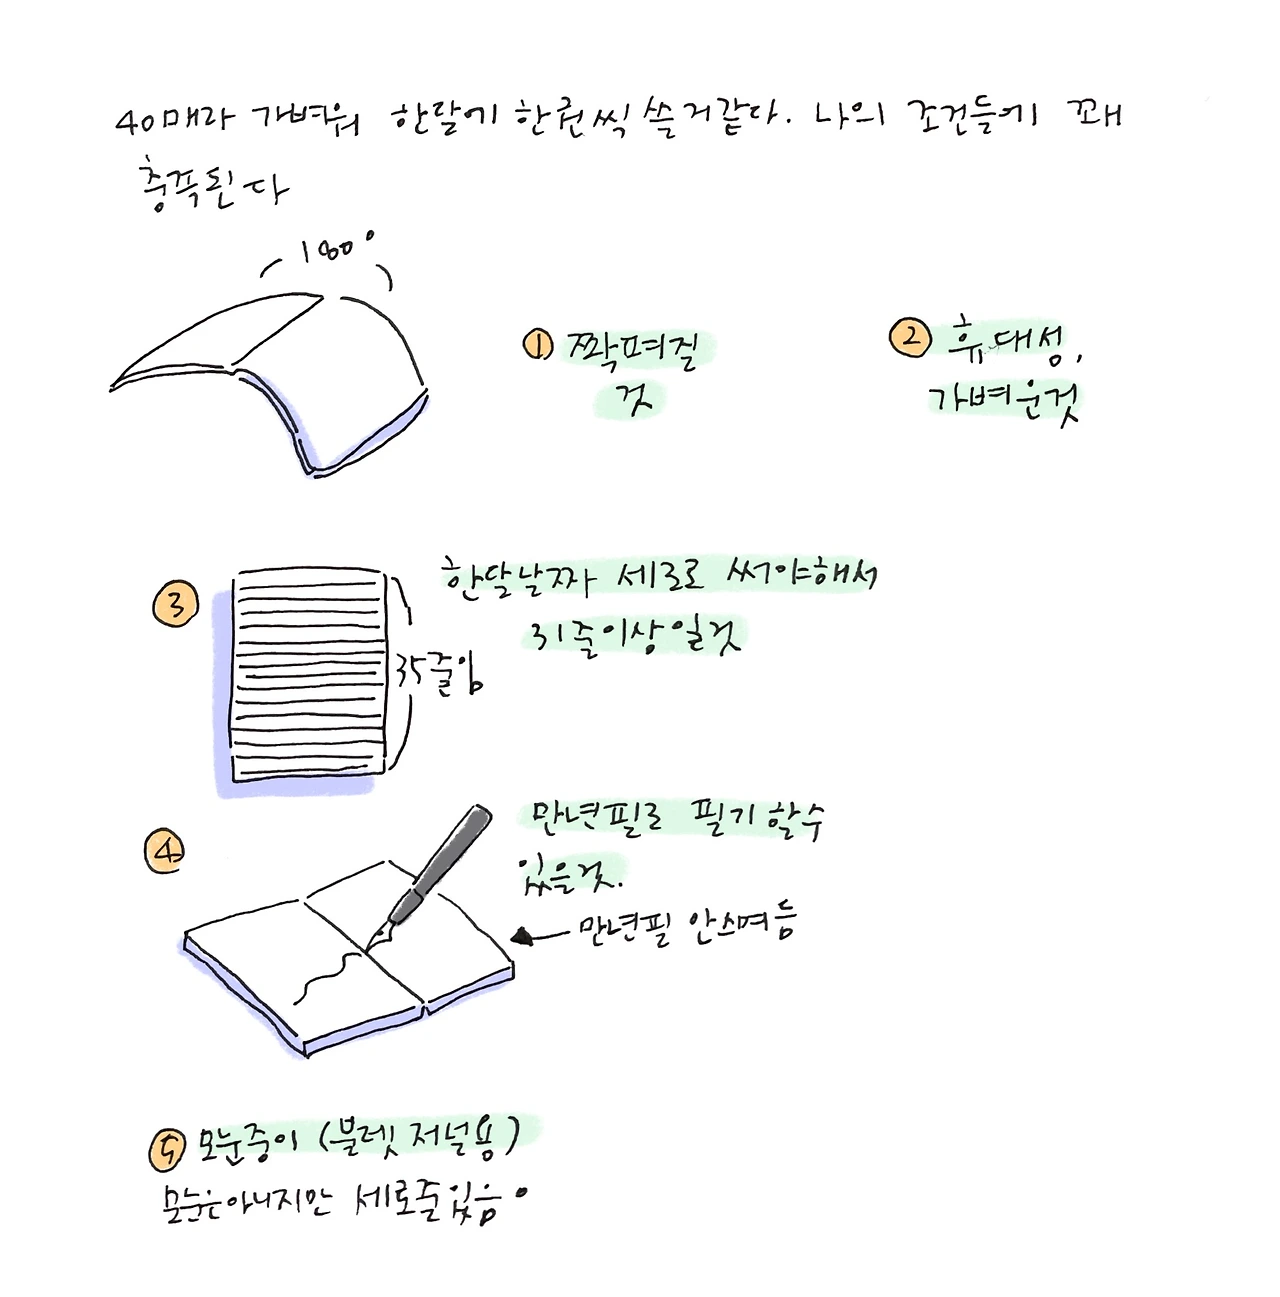 40매라 가벼워 한달에 한권씩 쓸거같다. 나의 조건들에 꽤
충족된다
180°
① 쫙펴질
것
② 휴대성,
가벼운것
③ 한달날짜 세로로 써야해서
31줄이상일것
35줄임
④ 만년필로 필기할수
있을것.
만년필 안스며듬
⑤ 모눈종이 (불렛저널용)
모눈은아니지만 세로줄있음.